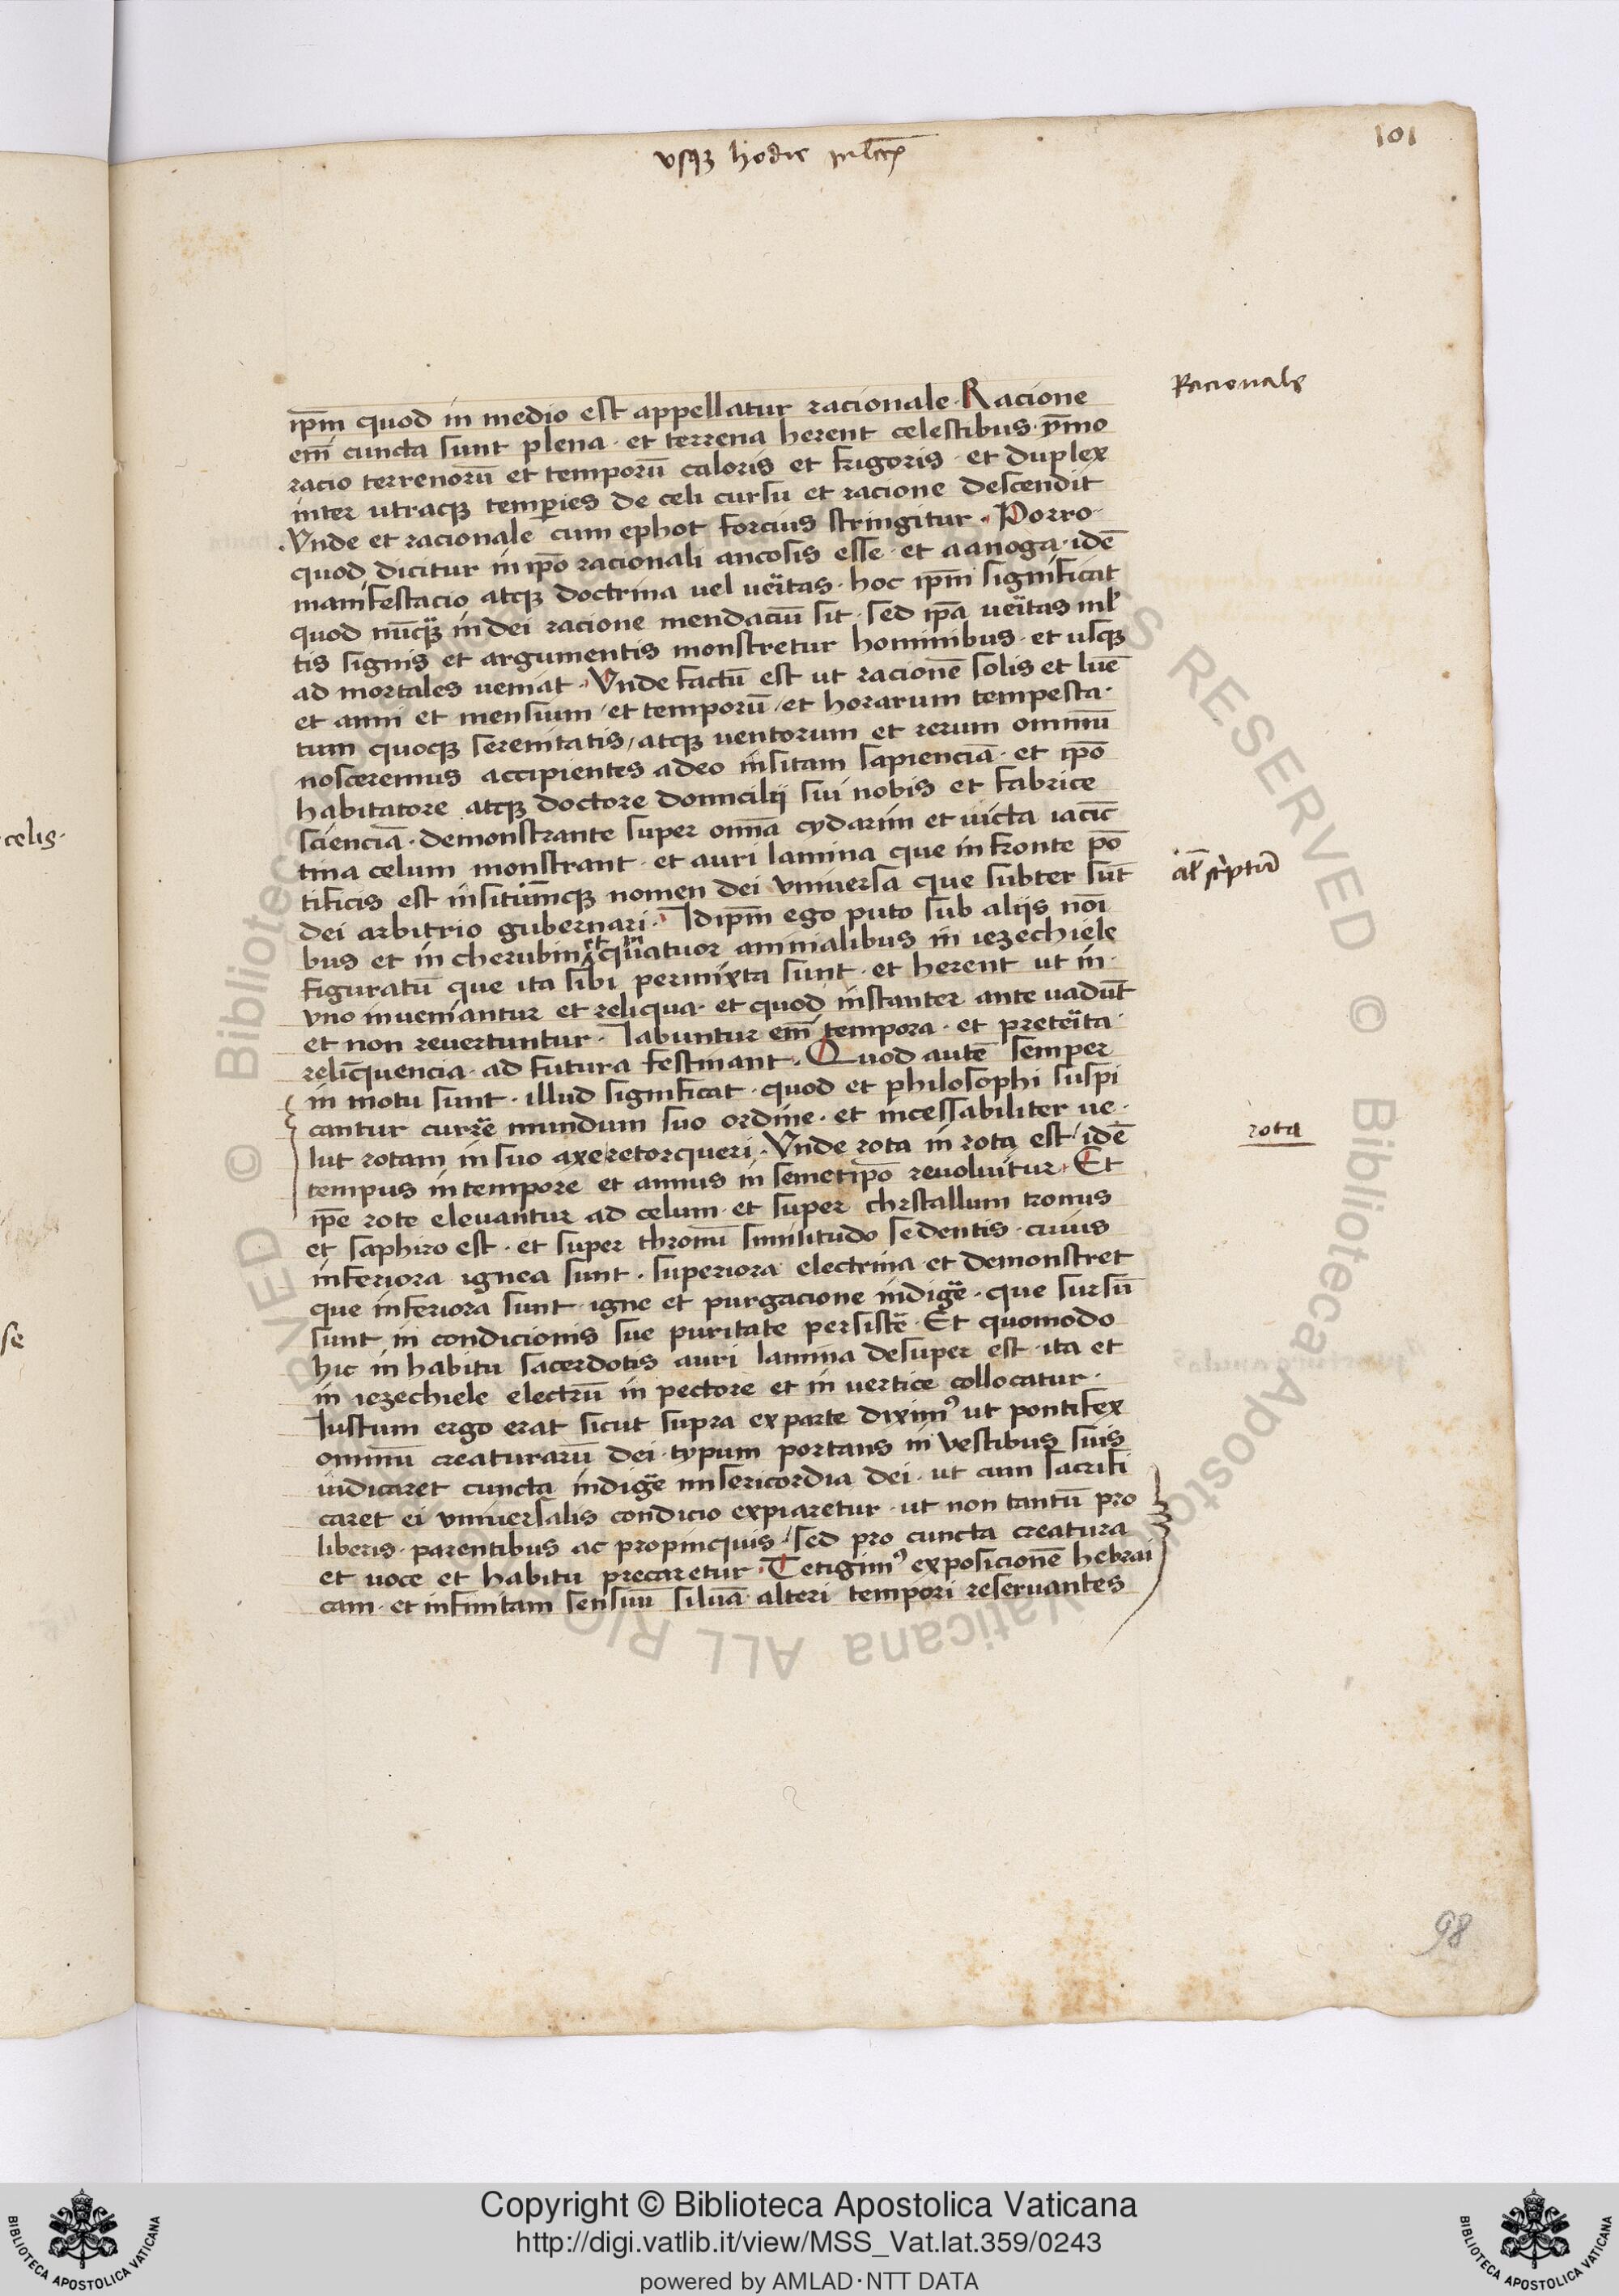 101
vsqꝫ hodie
ip̄m quod in medio est appellatur racionale. Racione
em̄ cuncta sunt plena. et terrena herent celestibus. ymo
racio terrenorū et temporū caloris et frigoris. et duplex
inter utracqꝫ temperies de celi cursu et racione descendit
.Vnde et racionale cum ephot forcius stringitur. Porro.
quod dicitur in ip̄o racionali ancosis esse. et aanoga. idē
manifestacio atqꝫ doctrina uel ueītas. hoc ip̄m significat
quod nūcqꝫ in dei racione mendaciū sit. sed ip̄a ueītas ml̄
tis signis et argumentis monstretur hominibus. et usqꝫ
ad mortales ueniat. Vnde factū est ut racionē solis et luē
et anni et mensium / et temporū / et horarum tempesta.
tum quoqꝫ serenitatis / atqꝫ uentorum et rerum omniū
nosceremus accipientes adeo insitam sapienciā. et ip̄o
habitatore atqꝫ doctore domicilij sui nobis et fabrice
scienciā. demonstrante super om̄a cydarim et uicta iacīc
tina celum monstrant. et auri lamina que in fronte pō
tificis est insitumqꝫ nomen dei vniuersa que subter sūt
dei arbitrio gubernari. Idip̄m ego puto sub alijs noī
bus et in cherubin et quatuor animalibus in iezechiele
figuratū que ita sibi permixta sunt. et herent ut in.
vno inueniantur et reliqua. et quod instanter ante uadūt
et non reuertuntur. labuntur em̄ tempora. et preteīta.
relīcquencia. ad futura festinant. Quod autē semper
in motu sunt. illud significat. quod et philosophi suspi
cantur curre̅ mundum suo ordine. et incessabiliter ue.
lut rotam in suo axe retorqueri. Vnde rota in rota est / idē
tempus in tempore et annus in semetip̄o reuoluitur. Et
ip̄e rote eleuantur ad celum. et super chrstallum tronus
et saphiro est. et super thronū similitudo sedentis. cuius
inferiora ignea sunt. superiora electrina. et demonstret
que inferiora sunt. igne et purgacione indige̅. que sursū
sunt in condicionis sue puritate persiste̅. Et quomodo
hic in habitu sacerdotis auri lamina desuper est. ita et
in iezechiele electrū in pectore et in uertice collocatur.
Iustum ergo erat sicut supra ex parte diximꝰ ut pontifex
omniū creaturarū dei. typum portans in vestibus suis
iudicaret cuncta indige̅ misericordia dei. ut cum sacrifi
caret ei vniuersalis condicio expiaretur. ut non tantū pro
liberis. parentibus ac propinquis / sed pro cuncta creatura
et uoce et habitu precaretur. Tetigimꝰ exposicionē hebrai
cam. et infinitam sensuū siluā. alteri tempori reseruantes
Racionale
al̄ sc̄ptū
rota
celis.
se
98
Copyright © Biblioteca Apostolica Vaticana
http://digi.vatlib.it/view/MSS_Vat.lat.359/0243
powered by AMLAD·NTT DATA
BIBLIOTECA APOSTOLICA VATICANA
BIBLIOTECA APOSTOLICA VATICANA